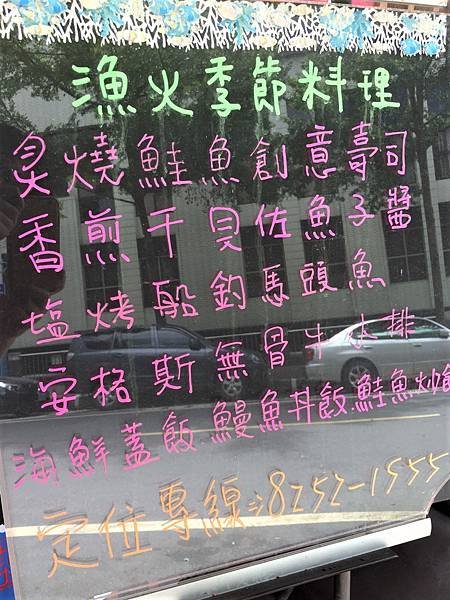 漁火季節料理
炙燒鮭魚創意壽司
香煎干貝佐魚子醬
塩烤船釣馬頭魚
安格斯無骨牛小排
海鮮蓋飯.鰻魚丼飯.鮭魚炒飯
定位專線:8252-1555